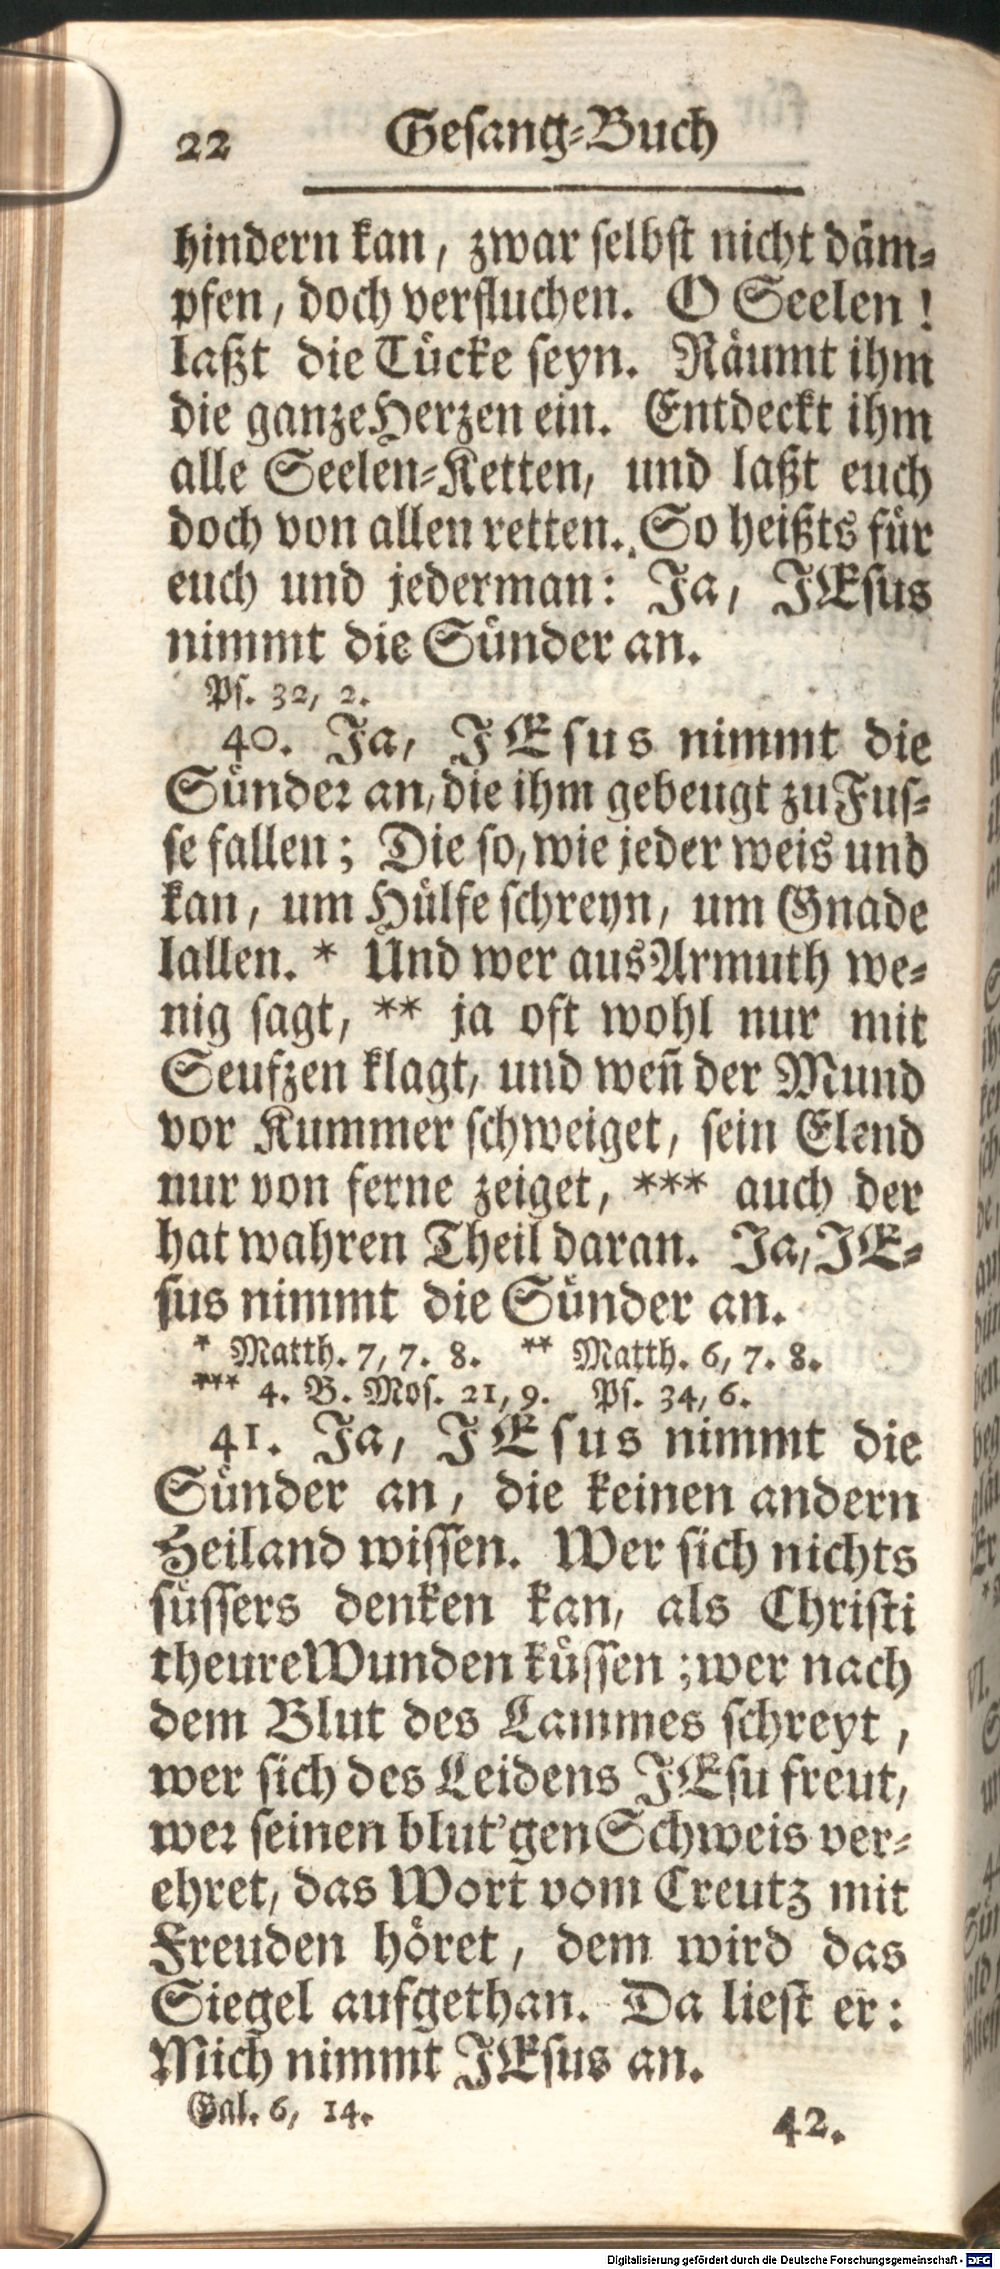 22 Gesang-Buch
hindern kan, zwar selbst nicht däm-
pfen, doch verfluchen. O Seelen!
laßt die Tücke seyn. Räumt ihm
die ganze Herzen ein. Entdeckt ihm
alle Seelen-Ketten, und laßt euch
doch von allen retten. So heißts für
euch und jederman: Ja, JEsus
nimmt die Sünder an.
Ps. 32, 2.
40. Ja, JEsus nimmt die
Sünder an, die ihm gebeugt zu Fus-
se fallen; Die so, wie jeder weis und
kan, um Hülfe schreyn, um Gnade
lallen. * Und wer aus Armuth we-
nig sagt, ** ja oft wohl nur mit
Seufzen klagt, und weñ der Mund
vor Kummer schweiget, sein Elend
nur von ferne zeiget, *** auch der
hat wahren Theil daran. Ja, JE-
sus nimmt die Sünder an.
* Matth. 7, 7. 8. ** Matth. 6, 7. 8.
*** 4. B. Mos. 21, 9. Ps. 34, 6.
41. Ja, JEsus nimmt die
Sünder an, die keinen andern
Heiland wissen. Wer sich nichts
süssers denken kan, als Christi
theure Wunden küssen; wer nach
dem Blut des Lammes schreyt,
wer sich des Leidens JEsu freut,
wer seinen blut'gen Schweis ver-
ehret, das Wort vom Creutz mit
Freuden höret, dem wird das
Siegel aufgethan. Da liest er:
Mich nimmt JEsus an.
Gal. 6, 14.
42.
Digitalisierung gefördert durch die Deutsche Forschungsgemeinschaft - DFG